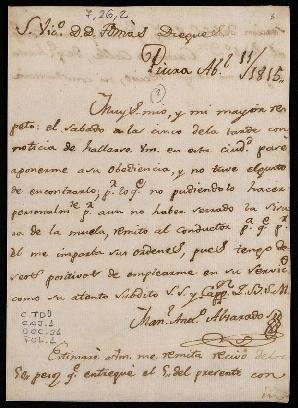 7,26,2
8
S. Vic.º D. D. Tomàs Dieguez
Piura Ab.l 11/1815
(3)
Muy S. mio, y mi mayor res
peto: el sabado a la cinco dela tarde con
noticia de hallarse Vm. en esta ciud.d pasè
aponerme asu Obediencia, y no tuve elgusto
de encontrarlo, p.r lo q.e no pudiendolo hacer
personalm.te p.r aun no haber serrado la
de la muela, remito al conductor p.a q.e p.r
èl me imparta sus ordenes, pues tengo de
seos positivos de emplearme en su servicio
como su atento Subdito S. S. y Capp.n Q. B. S. M.
Man.l Ant.o Alvarado
Estimarè Vm. me remita recivo delos
pesos q.e entreguè el del presente con
CTDD
CAJ.1
DOC.31
FOL.1